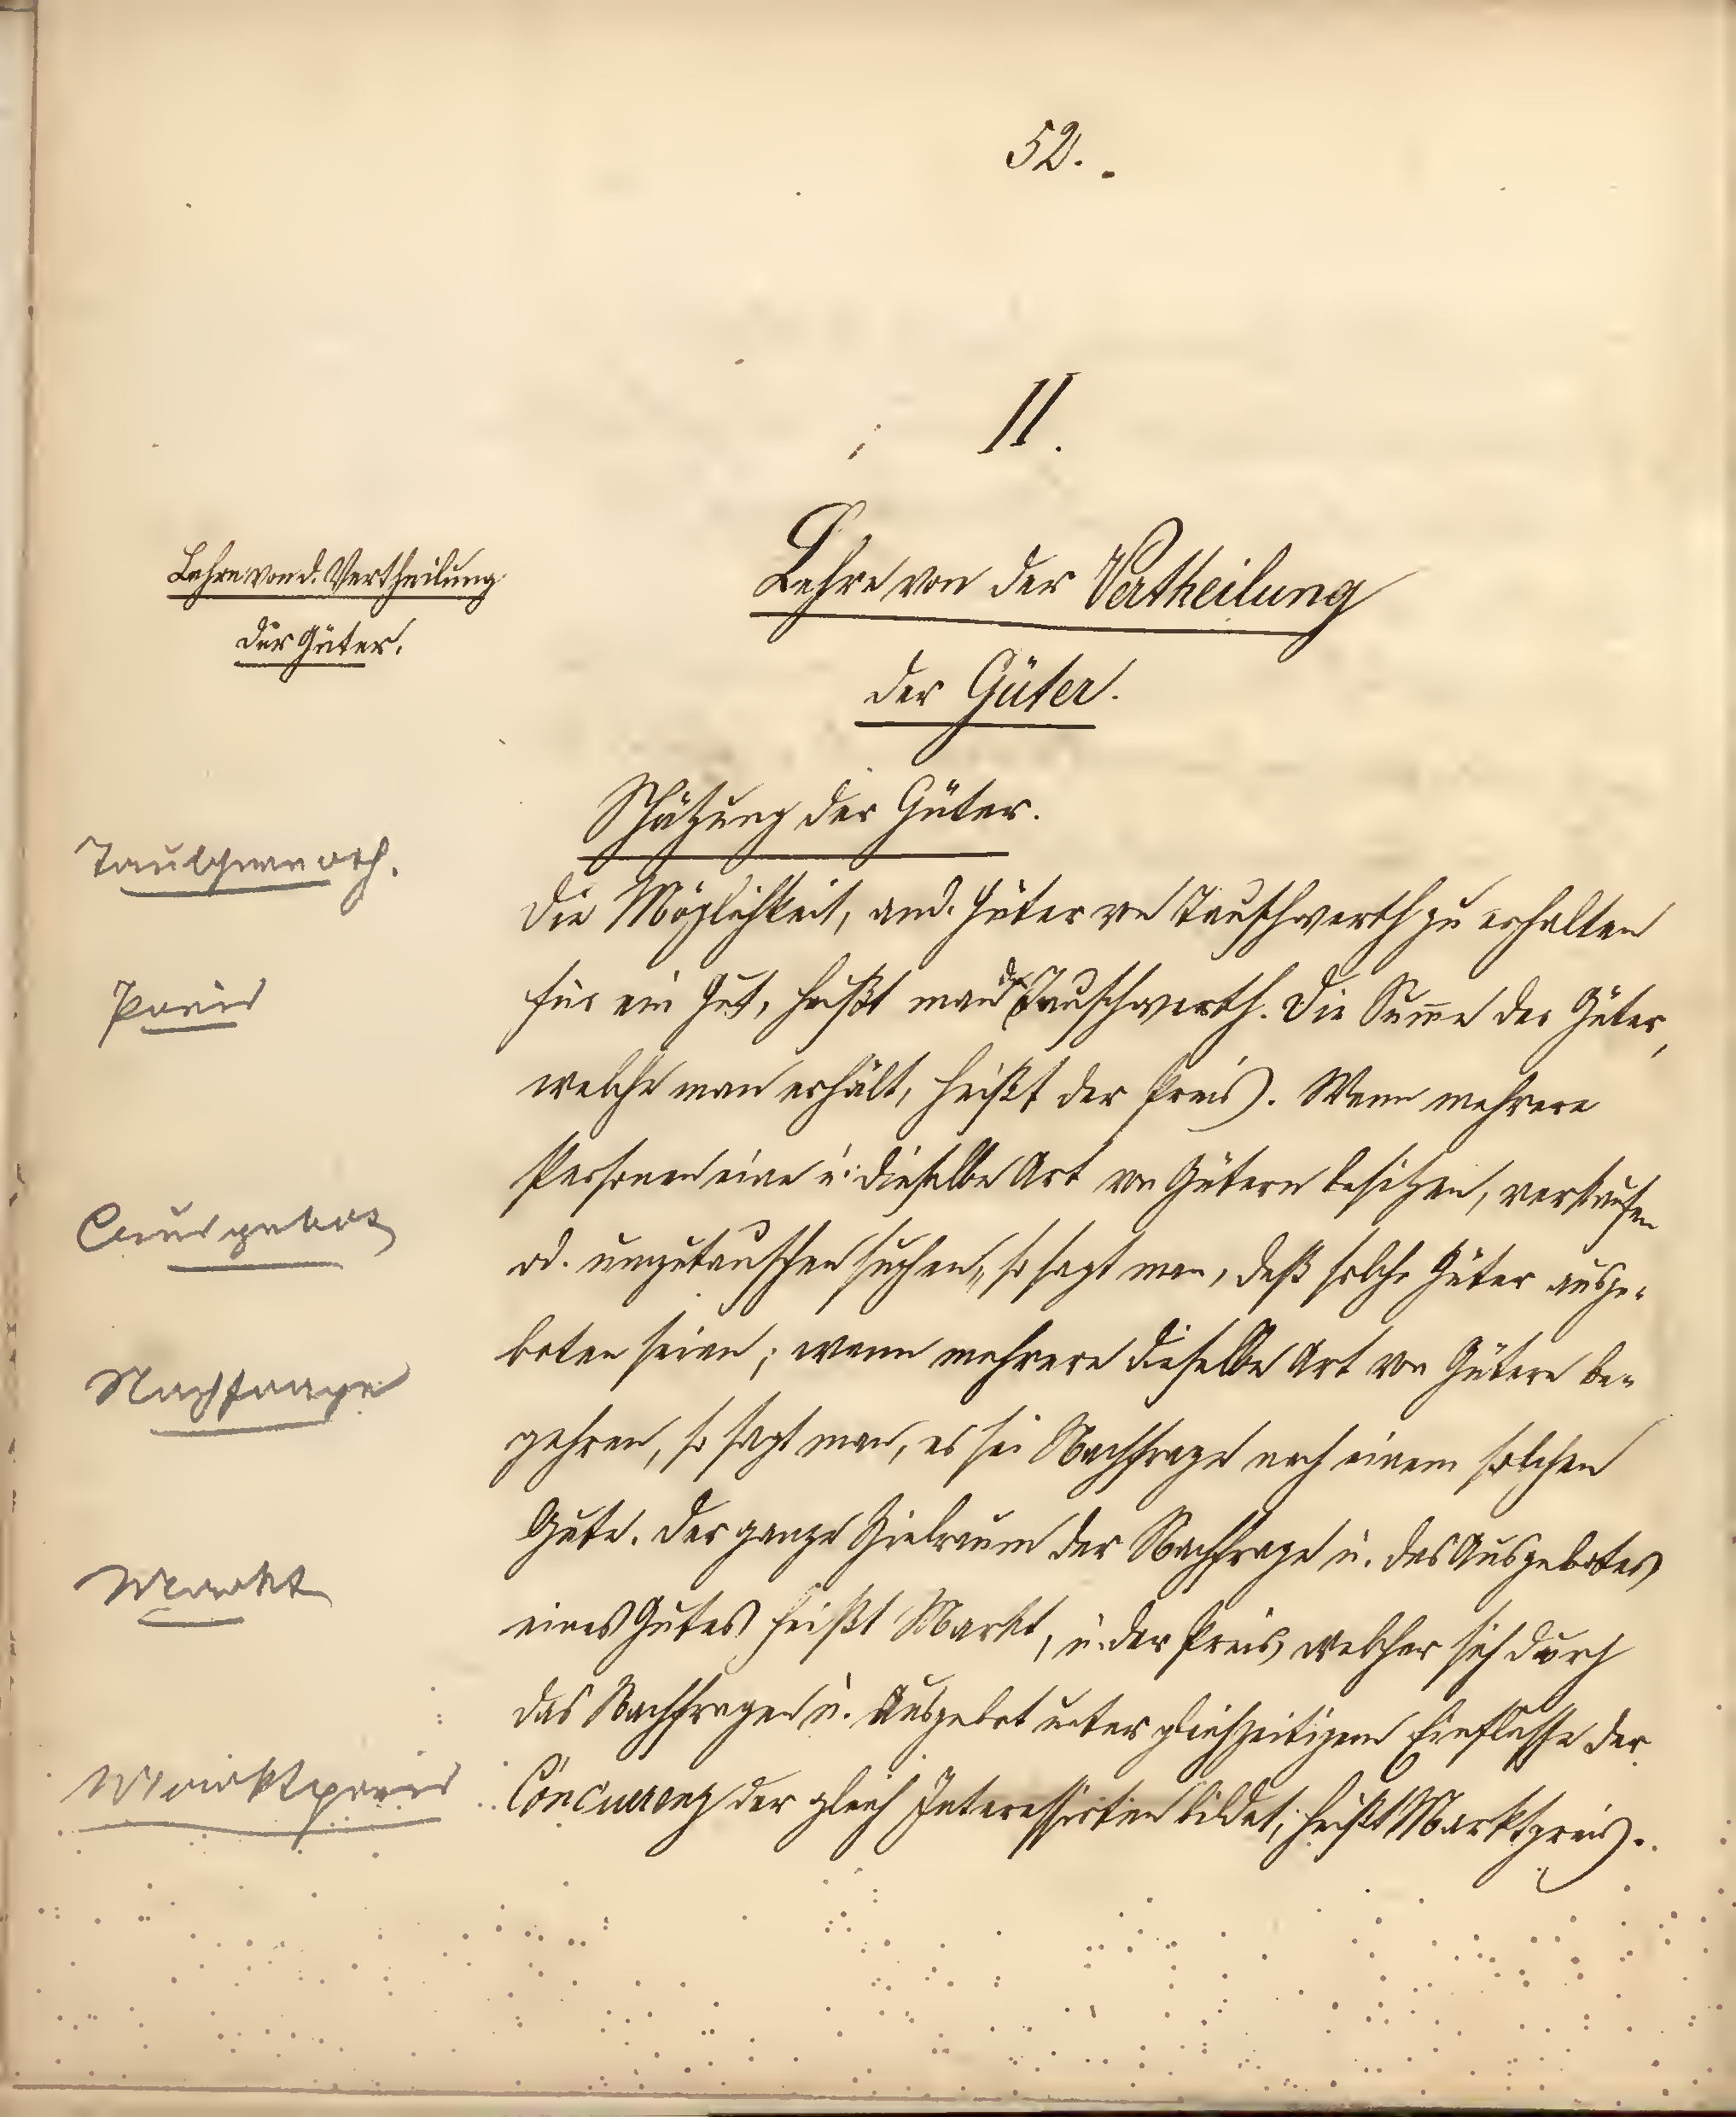 52.
II.
Lehre von d. Vertheilung
der Güter.
Lehre von der Vertheilung
der Güter.
Schätzung der Güter.
Tauschwerth.
Die Möglichkeit, and. Güter von Tauschwerth zu erhalten
Preis
für ein Gut, heißt man den Tauschwerth. Die Sum̅e der Güter,
welche man erhält, heißt der Preis. Wenn mehrere
Personen eine u. dieselbe Art von Gütern besitzen, verkaufen
Ausgebot
od. umzutauschen suchen, so sagt man, daß solche Güter ausge-
boten seien; wenn mehrere dieselbe Art von Gütern be-
Nachfrage
gehren, so sagt man, es sei Nachfrage nach einem solchen
Gute. Der ganze der Nachfrage u. des Ausgebotes
Markt
eines Gutes heißt Markt, u. der Preis welcher sich durch
das Nachfragen u. Ausgebot unter gleichzeitigem Einflusse der
Marktpreis
Concurrenz der gleich Interessirten bildet, heißt Marktpreis.